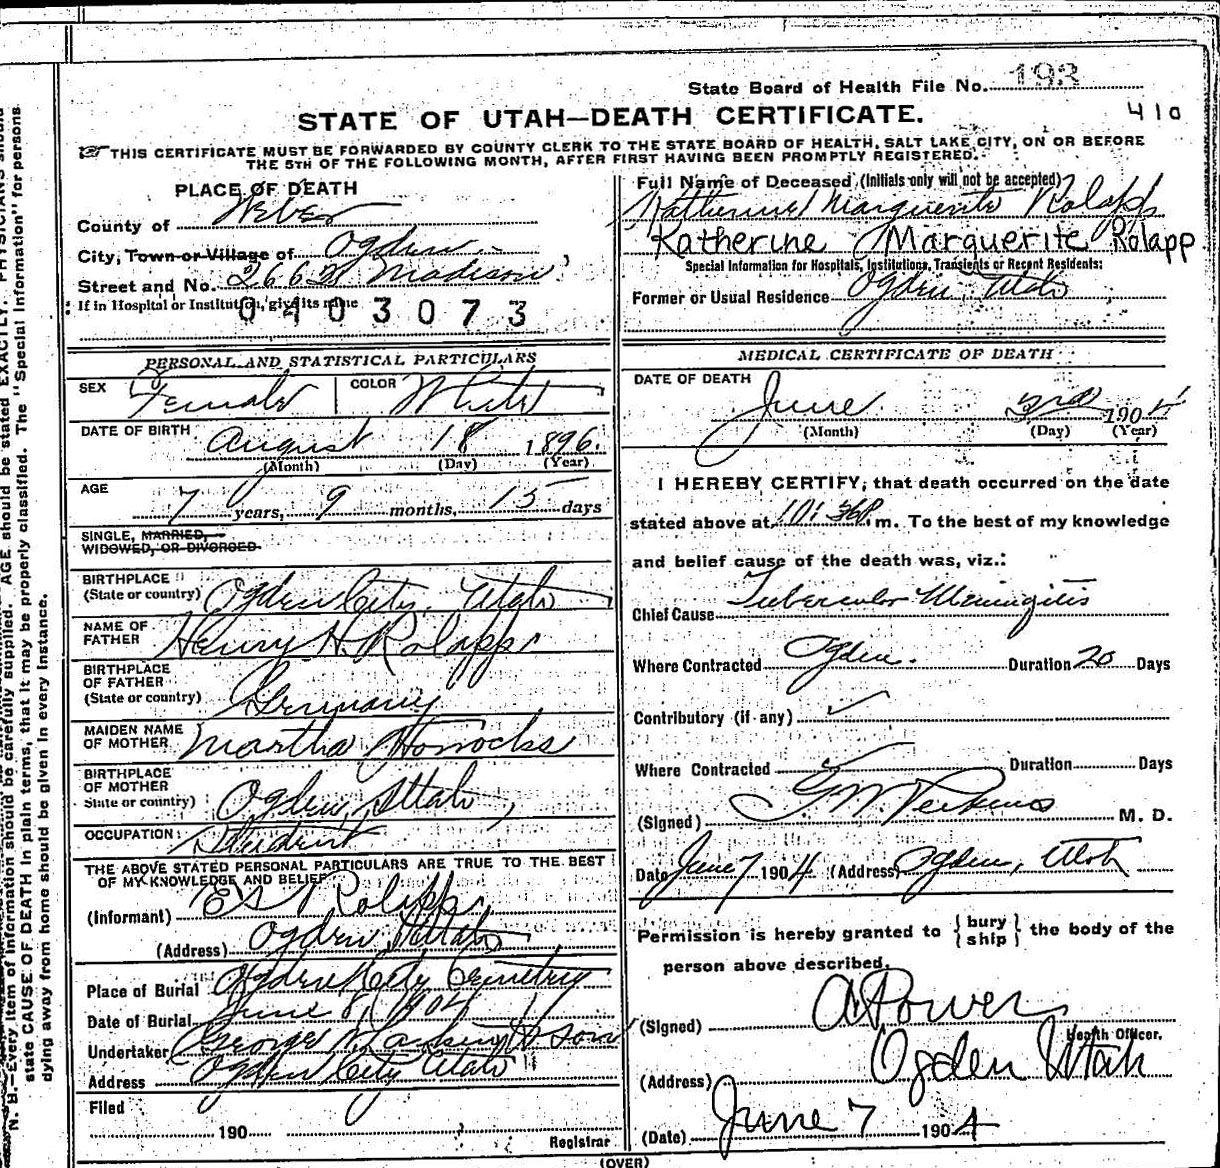 State Board of Health File No. 193
410
STATE OF UTAH—DEATH CERTIFICATE.
THIS CERTIFICATE MUST BE FORWARDED BY COUNTY CLERK TO THE STATE BOARD OF HEALTH, SALT LAKE CITY, ON OR BEFORE
THE 5TH OF THE FOLLOWING MONTH, AFTER FIRST HAVING BEEN PROMPTLY REGISTERED.
PLACE OF DEATH
County of Weber
City, Town or Village of Ogden
Street and No. 2662 Madison
If in Hospital or Institution, give its name
0403073
Full Name of Deceased (Initials only will not be accepted)
Katherine Marguerite Rolapp
Katherine Marguerite Rolapp
Special Information for Hospitals, Institutions, Transients or Recent Residents:
Former or Usual Residence Ogden, Utah
PERSONAL AND STATISTICAL PARTICULARS
SEX Female COLOR White
DATE OF BIRTH August 18 1896.
(Month) (Day) (Year)
AGE
7 years, 9 months, 15 days
SINGLE, MARRIED,
WIDOWED, OR DIVORCED
BIRTHPLACE
(State or country) Ogden City, Utah
NAME OF
FATHER Henry H. Rolapp
BIRTHPLACE
OF FATHER
(State or country) Germany
MAIDEN NAME
OF MOTHER Martha Horrocks
BIRTHPLACE
OF MOTHER
State or country) Ogden, Utah,
OCCUPATION: Student
THE ABOVE STATED PERSONAL PARTICULARS ARE TRUE TO THE BEST
OF MY KNOWLEDGE AND BELIEF
(Informant) Rolapp
(Address) Ogden, Utah
Place of Burial Ogden City Cemetery
Date of Burial June 8, 1904
Undertaker George W. Larkin & Son
Address Ogden City Utah
Filed
190
Registrar
MEDICAL CERTIFICATE OF DEATH
DATE OF DEATH
June 3rd 1904
(Month) (Day) (Year)
I HEREBY CERTIFY, that death occurred on the date
stated above at 10:36 P. m. To the best of my knowledge
and belief cause of the death was, viz.:
Chief Cause Tubercular Meningitis
Where Contracted Ogden. Duration 20 Days
Contributory (if any)
Where Contracted Duration Days
(Signed) G. W. Perkins M. D.
Date June 7 1904 (Address) Ogden, Utah
Permission is hereby granted to { bury
ship } the body of the
person above described.
(Signed) A Powers
Health Officer.
(Address) Ogden Utah
(Date) June 7 1904
(OVER)
N. B.—Every item of information should be carefully supplied. AGE should be stated EXACTLY. PHYSICIANS should
state CAUSE OF DEATH in plain terms, that it may be properly classified. The "Special Information" for persons
dying away from home should be given in every instance.